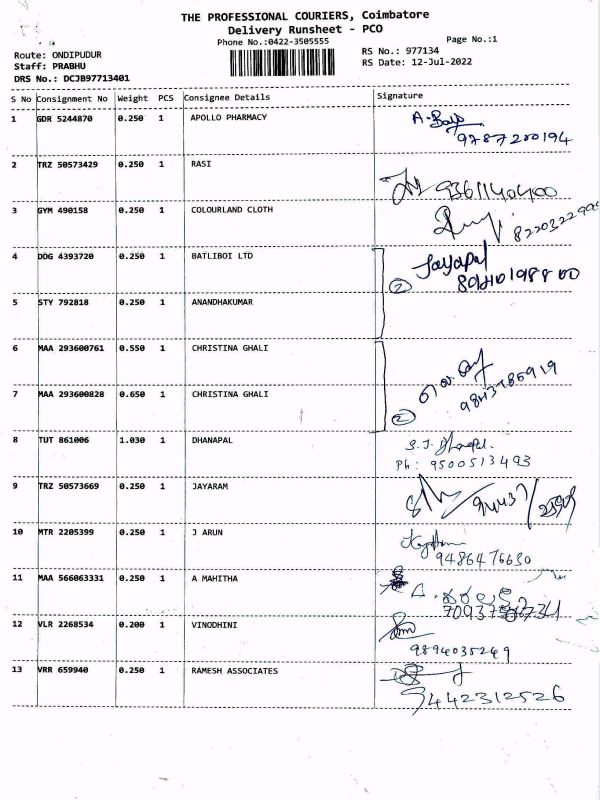 THE PROFESSIONAL COURIERS, Coimbatore
Delivery Runsheet - PCO
Phone No.:0422-3505555
Page No.:1
Route: ONDIPUDUR
RS No.: 977134
Staff: PRABHU
RS Date: 12-Jul-2022
DRS No.: DCJB97713401
S No Consignment No Weight PCS Consignee Details Signature
1 GDR 5244870 0.250 1 APOLLO PHARMACY
9787200194
2 TRZ 50573429 0.250 1 RASI
9361140400
3 GYM 490158 0.250 1 COLOURLAND CLOTH
4 DDG 4393720 0.250 1 BATLIBOI LTD Jayapal
2
5 STY 792818 0.250 1 ANANDHAKUMAR
6 MAA 293600761 0.550 1 CHRISTINA GHALI
7 MAA 293600828 0.650 1 CHRISTINA GHALI
2
8 TUT 861006 1.030 1 DHANAPAL
Ph: 9500513493
9 TRZ 50573669 0.250 1 JAYARAM
10 MTR 2205399 0.250 1 J ARUN
9486476630
11 MAA 566063331 0.250 1 A MAHITHA
12 VLR 2268534 0.200 1 VINODHINI
9894035249
13 VRR 659940 0.250 1 RAMESH ASSOCIATES
9442312526